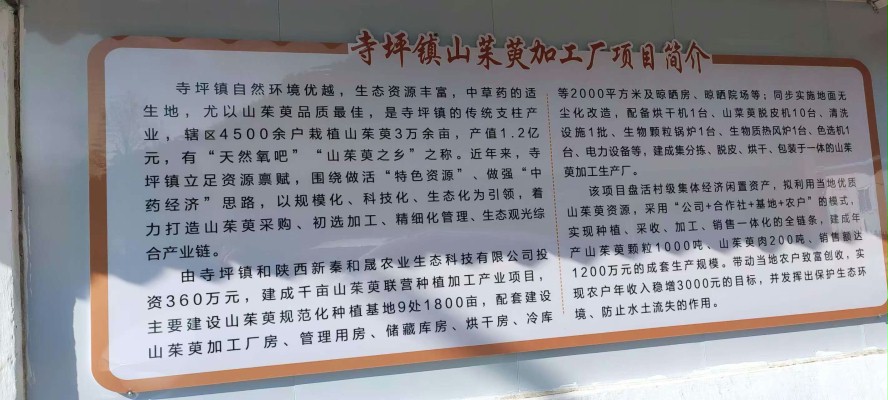 寺坪镇山茱萸加工厂项目简介
寺坪镇自然环境优越，生态资源丰富，中草药的适
生地，尤以山茱萸品质最佳，是寺坪镇的传统支柱产
业，辖区4500余户栽植山茱萸3万余亩，产值1.2亿
元，有“天然氧吧”“山茱萸之乡”之称。近年来，寺
坪镇立足资源禀赋，围绕做活“特色资源”、做强“中
药经济”思路，以规模化、科技化、生态化为引领，着
力打造山茱萸采购、初选加工、精细化管理、生态观光综
合产业链。
由寺坪镇和陕西新秦和晟农业生态科技有限公司投
资360万元，建成千亩山茱萸联营种植加工产业项目，
主要建设山茱萸规范化种植基地9处1800亩，配套建设
山茱萸加工厂房、管理用房、储藏库房、烘干房、冷库
等2000平方米及晾晒房、晾晒院场等；同步实施地面无
尘化改造，配备烘干机1台、山菜萸脱皮机10台、清洗
设施1批、生物颗粒锅炉1台、生物质热风炉1台、色选机1
台、电力设备等，建成集分拣、脱皮、烘干、包装于一体的山茱
萸加工生产厂。
该项目盘活村级集体经济闲置资产，拟利用当地优质
山茱萸资源，采用“公司+合作社+基地+农户”的模式，
实现种植、采收、加工、销售一体化的全链条，建成年
产山茱萸颗粒1000吨、山茱萸肉200吨、销售额达
1200万元的成套生产规模。带动当地农户致富创收，实
现农户年收入稳增3000元的目标，并发挥出保护生态环
境、防止水土流失的作用。